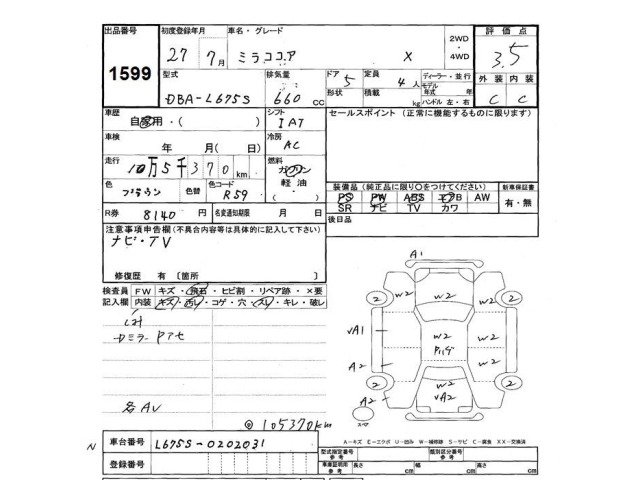 出品番号 初度登録年月 車名・グレード 2WD・4WD 評価点
1599 27年 7月 ミラココア X 3.5
型式 排気量 ドア 5 定員 4人 ディーラー・並行 外装 内装
DBA-L675S 660cc 形状 積載 kg モデル年式 年 ハンドル 左・右 C C
車歴 自家用・( ) シフト IAT セールスポイント (正常に機能するものに限ります)
車検 年 月(日) 冷房 AC
走行 10万5千370km 燃料 ガソリン 軽油・( )
色 ブラウン 色替 色コード R59
装備品(純正品に限り○をつけてください) 新車保証書
PS PW ABS エアB AW 有・無
SR ナビ TV カワ
R券 8140円 名変通知期限 月 日 後日品
注意事項申告欄(不具合内容等は具体的に記入して下さい)
ナビ・TV
修復歴 有 [箇所 ]
検査員記入欄 FW キズ・飛石・ヒビ割・リペア跡・×要
内装 キズ・汚レ・コゲ・穴・スレ・キレ・破レ
Dミラー Pアセ
各AV
◎105370km
A1
2 W2 W2 W2 2
VA1 W2 W2
パハゲ
A2 W2 W2
2 W2 VA2 2
スペア
A-キズ E-エクボ U-凹み W-補修跡 S-サビ C-腐食 XX-交換済
N 車台番号 L675S-0202031
登録番号
型式指定番号 参考 類別区分番号 参考
車庫証明用 参考 長さ cm 幅 cm 高さ cm